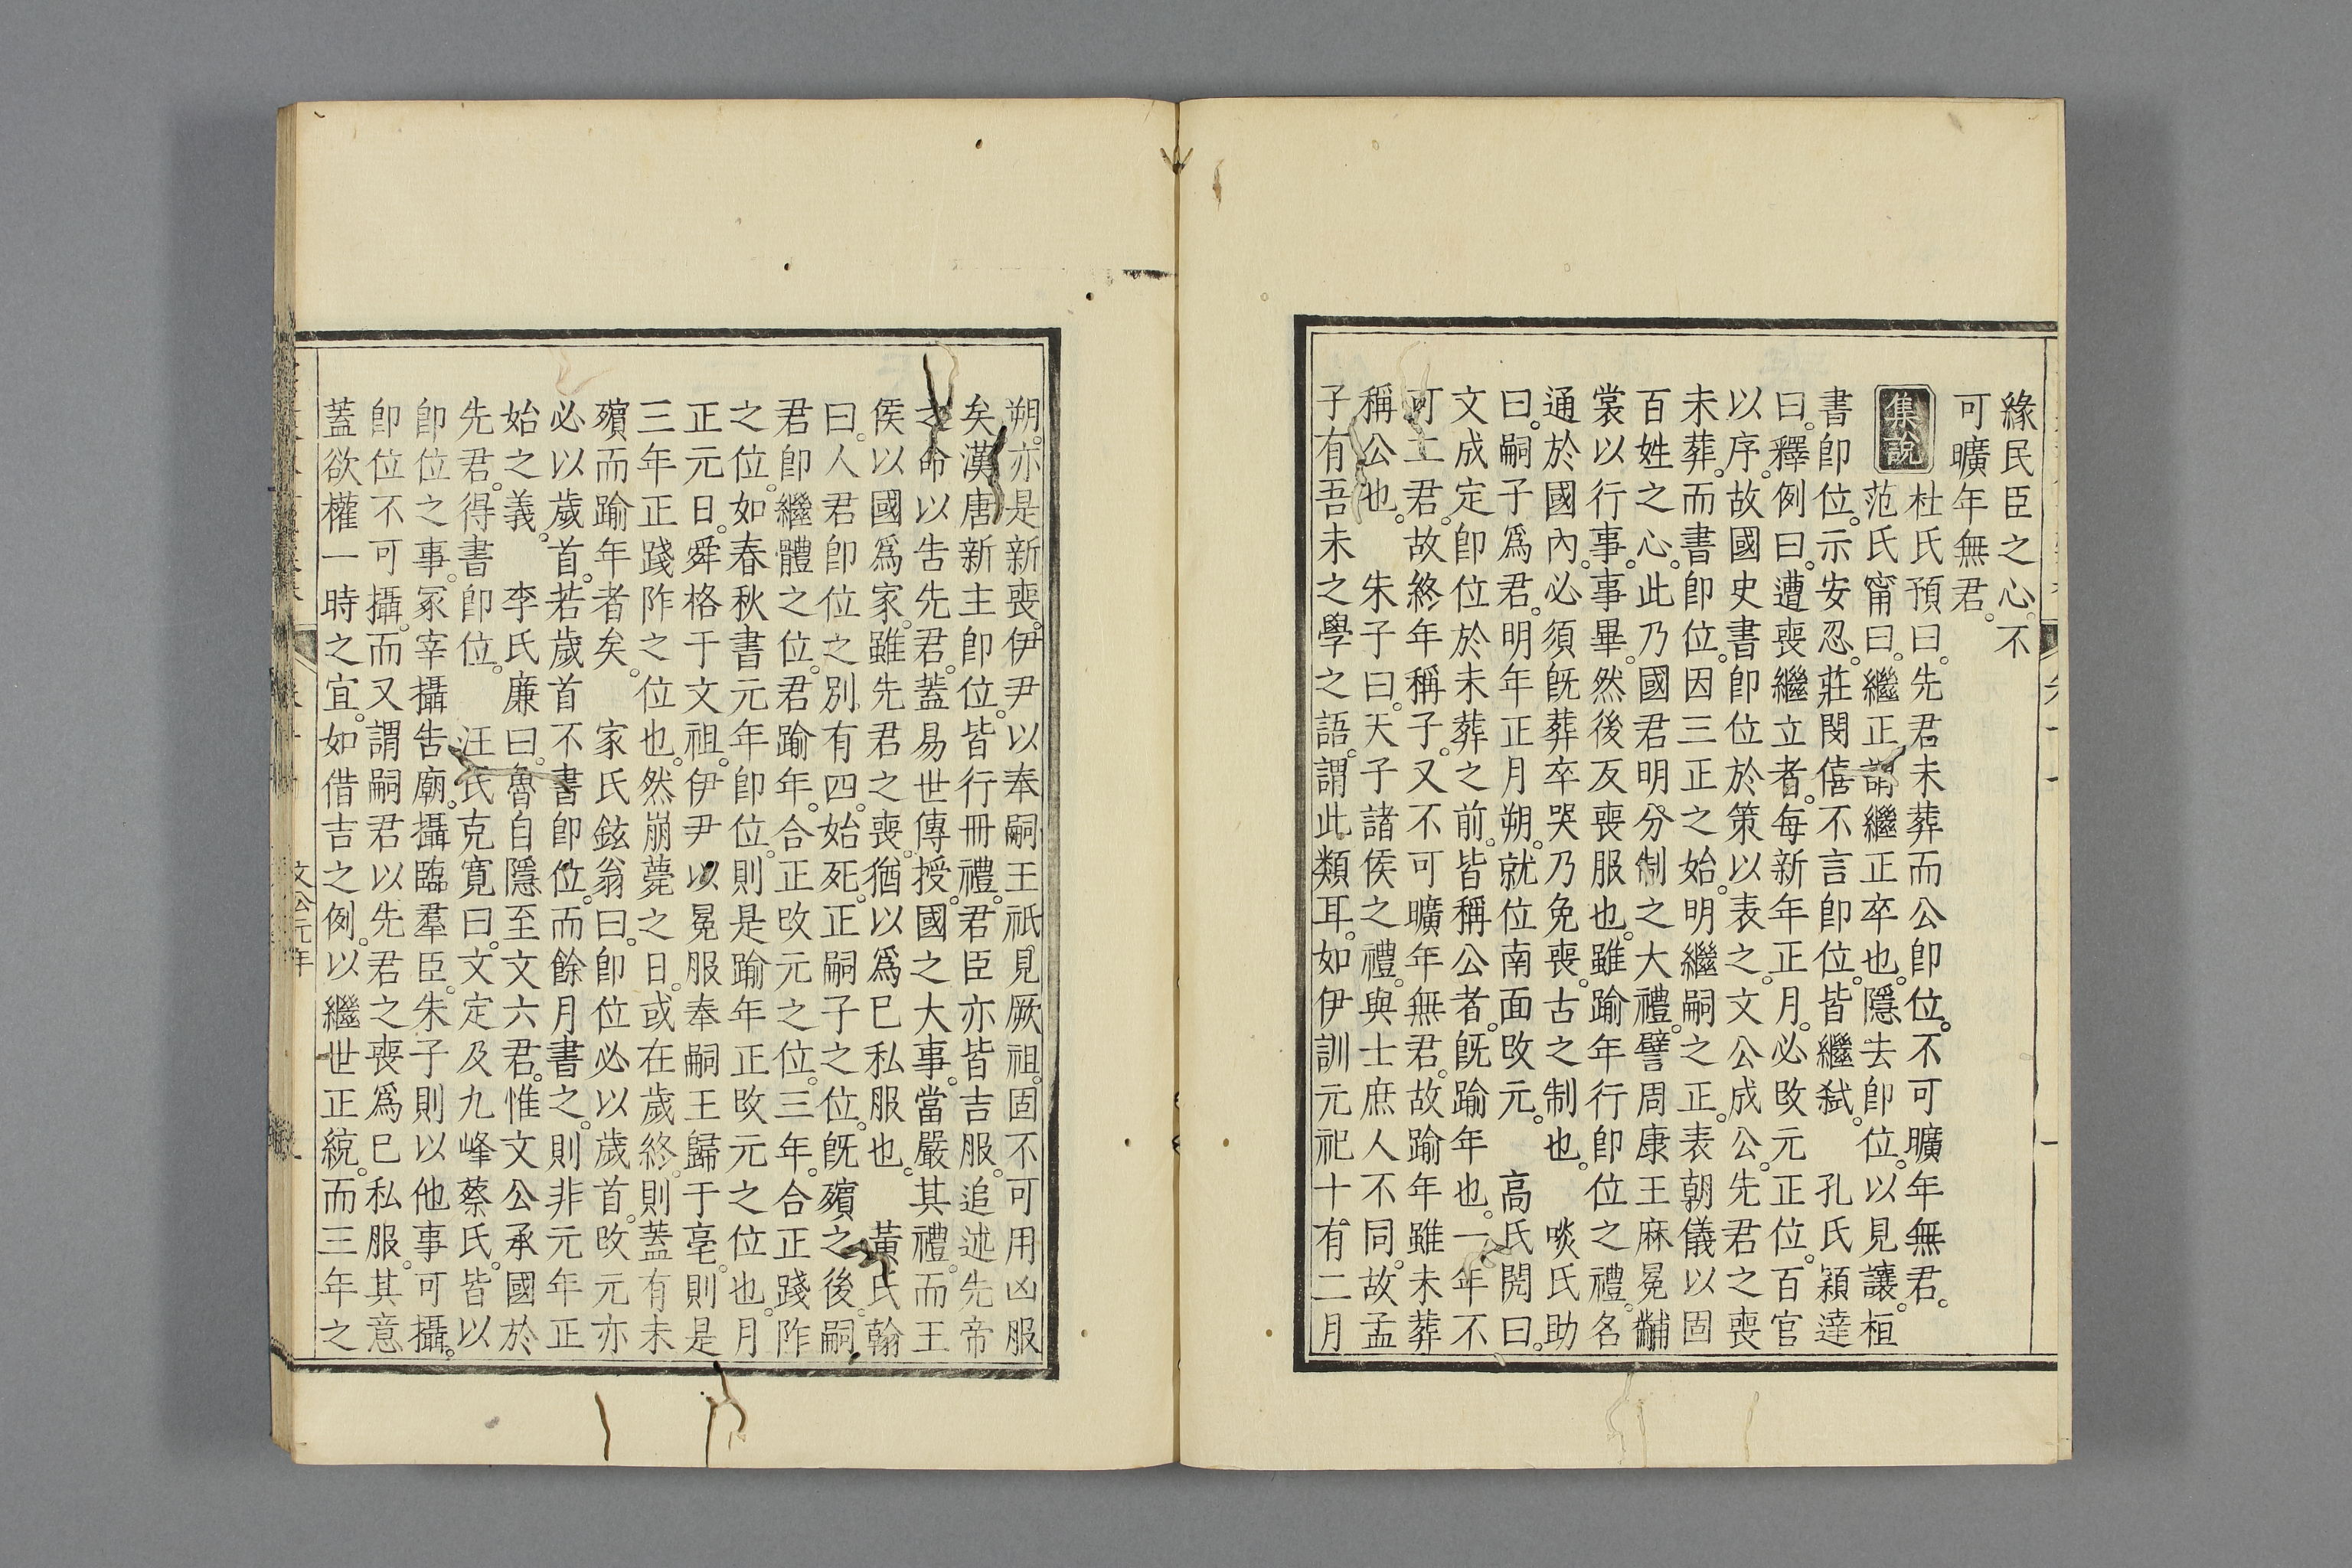 緣民臣之心。不
可曠年無君。
集說
杜氏預曰。先君未葬而公卽位。不可曠年無君。
范氏甯曰。繼正謂繼正卒也。隱去卽位。以見讓。桓
書卽位。示安忍。莊閔僖不言卽位。皆繼弑。 孔氏穎達
曰。釋例曰。遭喪繼立者。每新年正月。必改元正位。百官
以序。故國史書卽位於策以表之。文公成公。先君之喪
未葬。而書卽位。因三正之始。明繼嗣之正。表朝儀以固
百姓之心。此乃國君明分制之大禮。譬周康王麻冕黼
裳以行事。事畢。然後反喪服也。雖踰年行卽位之禮。名
通於國內。必須旣葬卒哭乃免喪。古之制也。 啖氏助
曰。嗣子爲君。明年正月朔。就位南面改元。 高氏閌曰。
文成定卽位於未葬之前。皆稱公者。旣踰年也。一年不
可二君。故終年稱子。又不可曠年無君。故踰年雖未葬
稱公也。 朱子曰。天子諸侯之禮。與士庶人不同。故孟
子有吾未之學之語。謂此類耳。如伊訓元祀十有二月
朔。亦是新喪。伊尹以奉嗣王祇見厥祖。固不可用凶服
矣。漢唐新主卽位。皆行冊禮。君臣亦皆吉服。追述先帝
之命以告先君。蓋易世傳授。國之大事。當嚴其禮。而王
侯以國爲家。雖先君之喪。猶以爲已私服也。 黃氏翰
曰。人君卽位之別有四。始死。正嗣子之位。旣殯之後。嗣
君卽繼體之位。君踰年。合正改元之位。三年。合正踐阼
之位。如春秋書元年卽位。則是踰年正改元之位也。月
正元日。舜格于文祖。伊尹以冕服奉嗣王歸于亳。則是
三年正踐阼之位也。然崩薨之日。或在歲終。則蓋有未
殯而踰年者矣。 家氏鉉翁曰。卽位必以歲首。改元亦
必以歲首。若歲首不書卽位。而餘月書之。則非元年正
始之義。 李氏廉曰。魯自隱至文六君。惟文公承國於
先君。得書卽位。 汪氏克寬曰。文定及九峰蔡氏。皆以
卽位之事。冢宰攝告廟。攝臨羣臣。朱子則以他事可攝。
卽位不可攝。而又謂嗣君以先君之喪爲已私服。其意
蓋欲權一時之宜。如借吉之例。以繼世正統。而三年之
文公元年